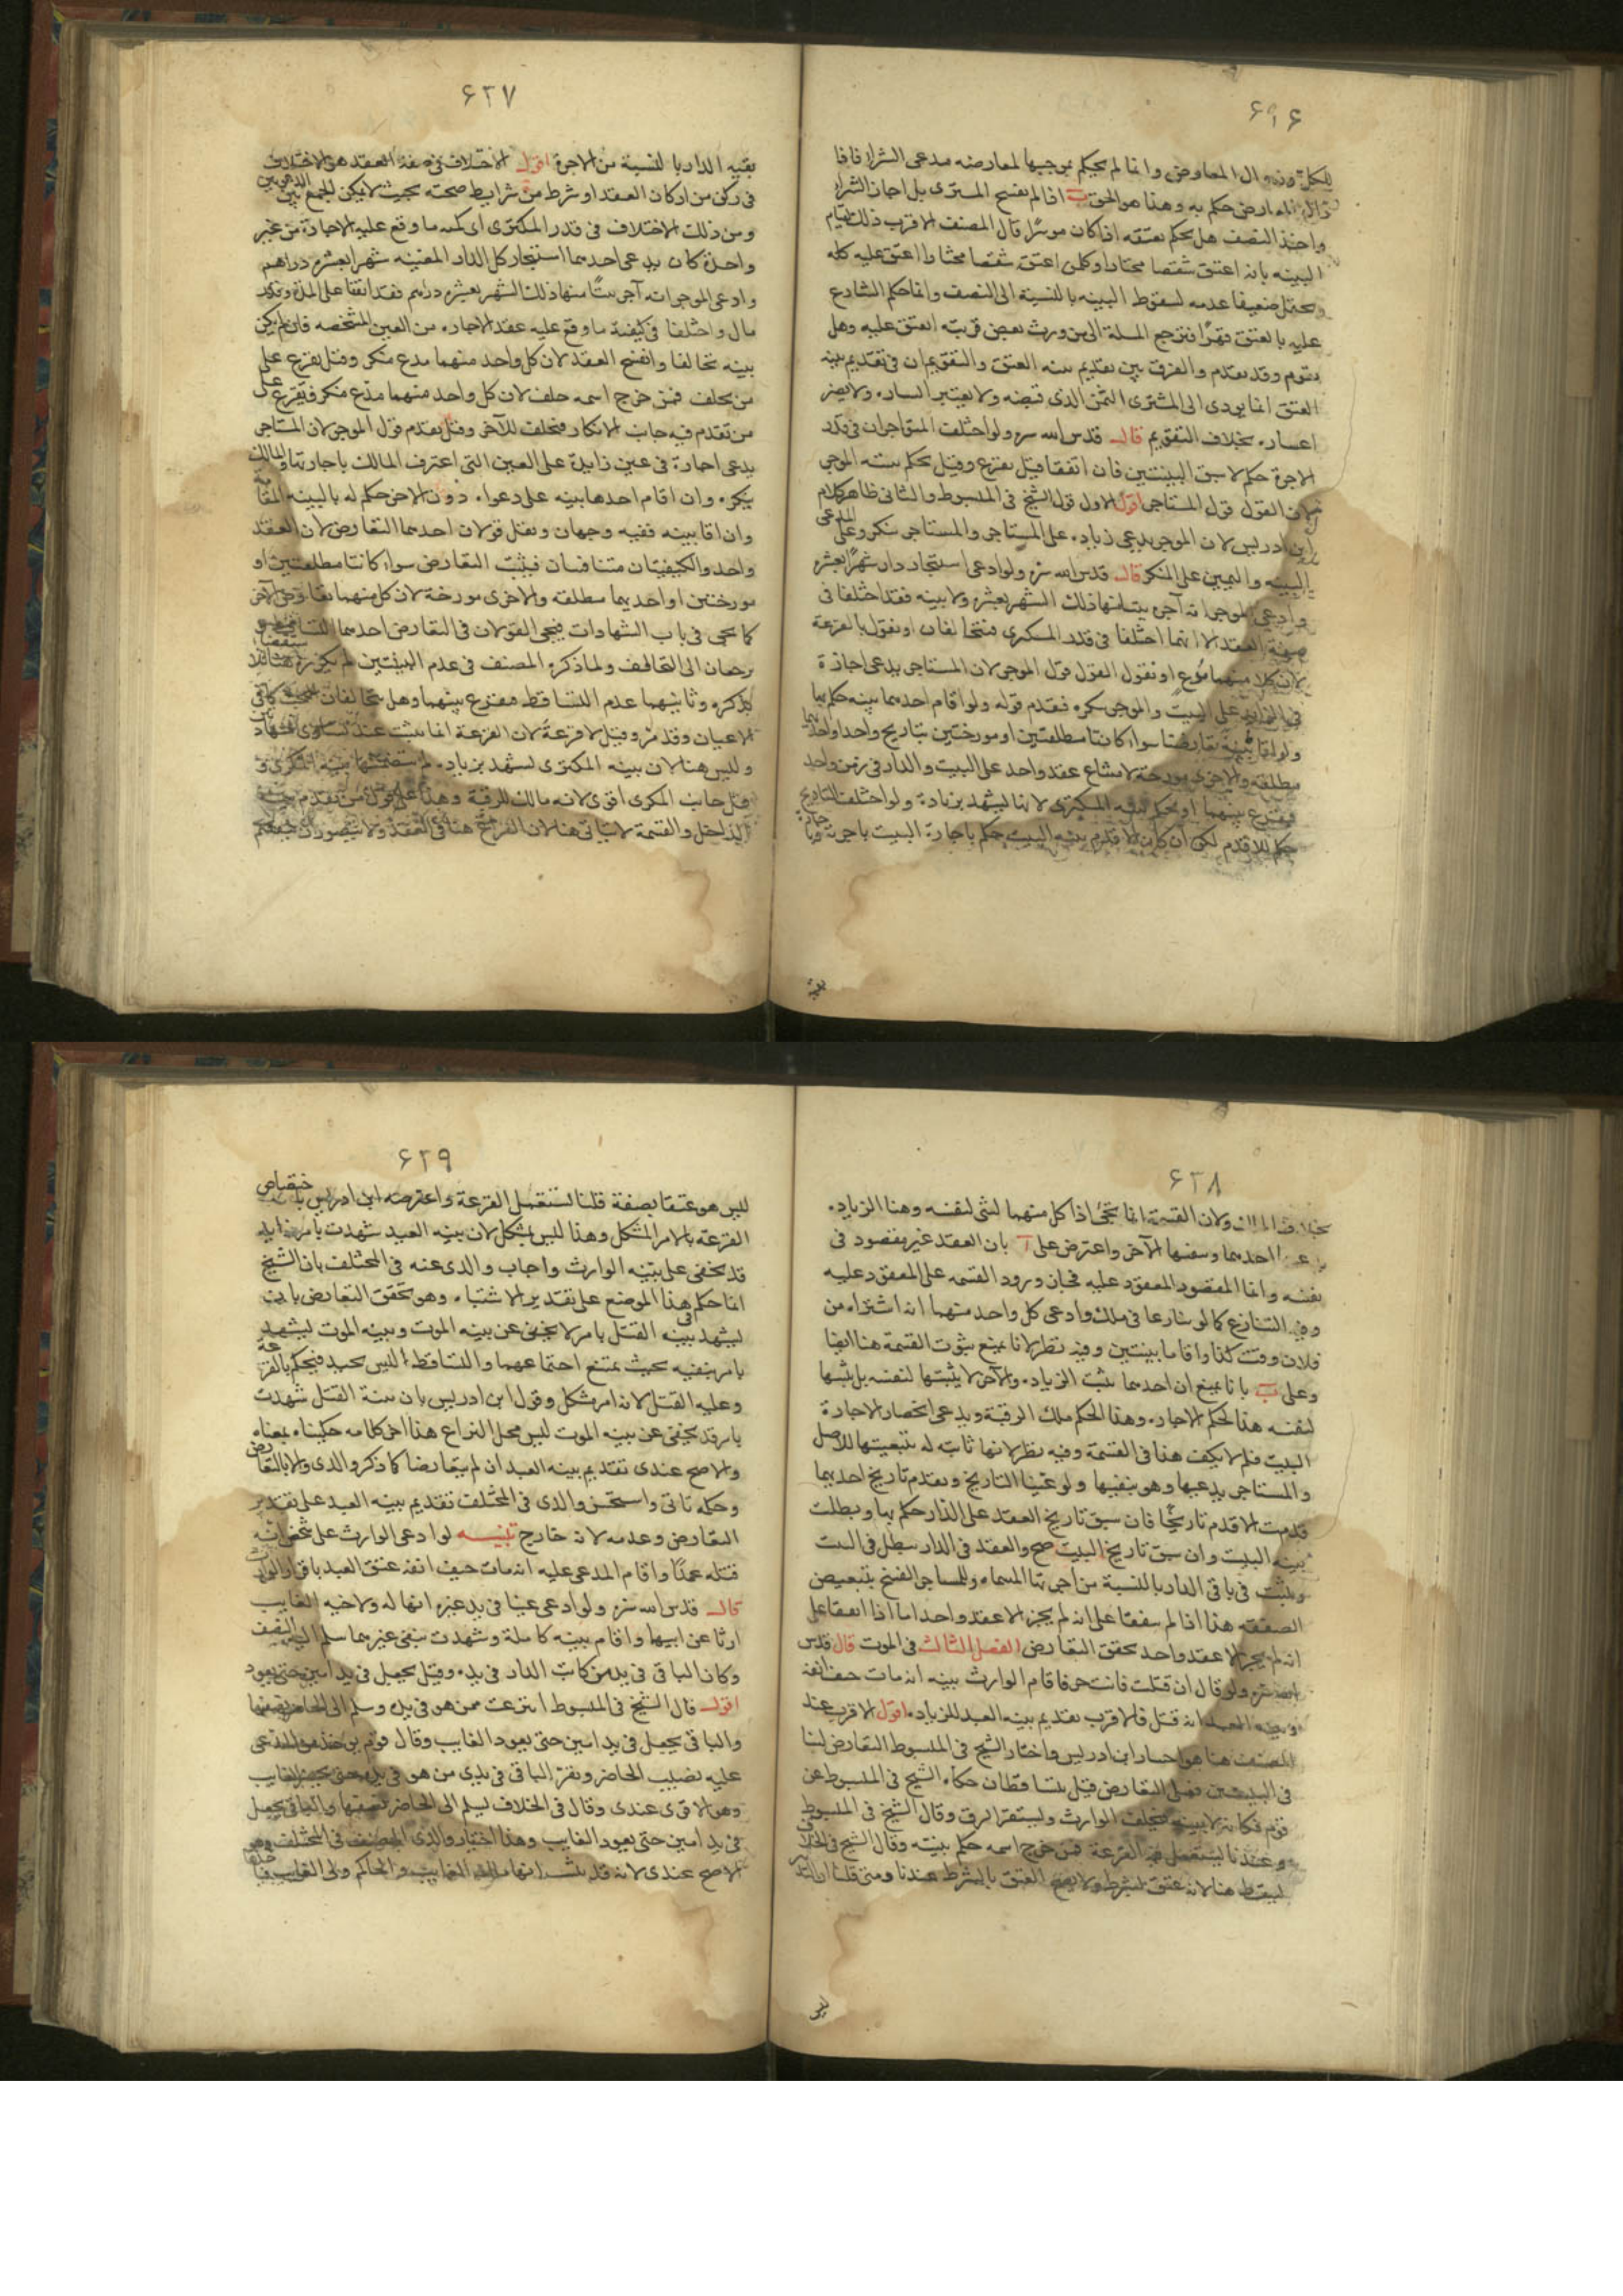 ۶۲۶
للكل وزوال المعارض وانما لم يحكم بموجبها لمعارضه مدعى الشراء فاذا
زال المعارض حكم به وهذا هو الحق ب اذا لم يفسخ المشترى بل اجاز الشراء
واخذ النصف هل يحكم بعتقه اذا كان موسرا قال المصنف الاقرب ذلك لقيام
البينه بانه اعتق شقصا مختارا وكل من اعتق شقصا مختارا اعتق عليه كله
ويحتمل ضعيفا عدمه لسقوط البينه بالنسبة الى النصف وانما حكم الشارع
عليه بالعتق قهرا فترجع المسلة الى من ورث بعض قريبه انعتق عليه وهل
يقوم وقد تقدم والفرق بين تقديم بينه العتق والتقويم ان فى تقديم بينه
العتق انما يودى الى المشترى الثمن الذى قبضه ولا يعتبر اليسار ولا يضر
اعساره بخلاف التقويم قال قدس الله سره ولو اختلف المتواجران فى قدر
الاجرة حكم لاسبق البينتين فان اتفقا قيل يقرع وقيل يحكم ببينه الموجر
لان القول قول المستاجر اقول الاول قول الشيخ فى المبسوط والثانى ظاهر كلام
ابن ادريس لان الموجر يدعى زياده على المستاجر والمستاجر منكر وعلى المدعى
البينه واليمين على المنكر قال قدس الله سره ولو ادعى استيجار دار شهرا بعشره
وادعى الموجر انه آجره بيتا منها ذلك الشهر بعشره ولا بينه فقد اختلفا فى
صفة العقد الا انهما اختلفا فى قدر المكرى فيتحالفان او نقول بالقرعة
لان كلا منهما مدع او نقول القول قول الموجر لان المستاجر يدعى اجازة
فى الزايد على البيت والموجر ينكره فيقدم قوله ولو اقام احدهما بينه حكم بها
ولو اقاما بينة تعارضتا سواء كانتا مطلقتين او مورختين بتاريخ واحد او احديهما
مطلقه والاخرى مورخة لامتناع عقد واحد على البيت والدار فى زمن واحد
فيقرع بينهما او يحكم ببينه المكترى لانها تشهد بزيادة ولو اختلف التاريخ
حكم للاقدم لكن ان كان الاقدم بينه البيت حكم باجارة البيت باجرته وباجارة
بقية
۶۲۷
بقيه الدار بالنسبة من الاجرة اقول الاختلاف فى صفة العقد هو الاختلاف
فى ركن من اركان العقد او شرط من شرايط صحته بحيث لا يمكن الجمع بين الدعويين
ومن ذلك الاختلاف فى قدر المكترى اى كميه ما وقع عليه الاجارة من غير
واحدة كان يدعى احدهما استيجار كل الدار المعينه شهرا بعشره دراهم
وادعى الموجر انه آجره بيتا منها ذلك الشهر بعشره دراهم فقد اتفقا على المدة وقدر
مال واختلفا فى كيفية ما وقع عليه عقد الاجاره من العين المشخصه فان لم يكن
بينه تحالفا وانفسخ العقد لان كل واحد منهما مدع منكر وقيل يقرع على
من يحلف فمن خرج اسمه حلف لان كل واحد منهما مدع منكر فيقرع على
من تقدم فيه جانب الانكار فيحلف للآخر وقيل يقدم قول الموجر لان المستاجر
يدعى اجارة فى عين زايدة على العين التى اعترف المالك باجارتها والمالك
ينكره وان اقام احدهما بينه على دعواه دون الاخر حكم له بالبينه المقامه
وان اقاما بينه ففيه وجهان ونقل قولان احدهما التعارض لان العقد
واحد والكيفيتان متنافيتان فيثبت التعارض سواء كانتا مطلقتين او
مورختين او احديهما مطلقه والاخرى مورخة لان كل منهما
كما يجى فى باب الشهادات فيجى القولان فى التعارض احدهما التساقط
يرجعان الى التحالف ولما ذكره المصنف فى عدم البينتين لم
يذكره وثانيهما عدم التساقط فيقرع بينهما وهل يتحالفان
الاعيان وقد مر وقيل لا قرعة لان القرعة انما تثبت عند تساوى
وليس هنا لان بينه المكترى تشهد بزياده لم تتضمنها بينه المكرى و
قيل جانب المكرى اقوى لانه مالك للرقبة وهذا على قول من يقدم بينه
الداخل والقسمة لا تتاتى هنا لان النزاع هنا فى العقد ولا يتصور
۶۲۸
بخلاف الملك ولان القسمة انما تجئ اذا كل منهما لشئ لنفسه وهنا الزياده
يدعيها احدهما وينفيها الآخر واعترض على آ بان العقد غير مقصود فى
نفسه وانما المقصود المعقود عليه فجاز ورود القسمه على المعقود عليه
وفيه التنازع كما لو تنازعا فى ملك وادعى كل واحد منهما انه اشتراه من
فلان وقت كذا واقاما بينتين وفيه نظر لانا نمنع ثبوت القسمة هنا ايضا
وعلى ب بانا نمنع ان احدهما يثبت الزياده والآخر لا يثبتها لنفسه بل يثبتها
لنفسه هذا لحكم الاجاره وهذا لحكم ملك الرقبة ويدعى انحصار الاجارة
البيت فلم لا يكف هذا فى القسمة وفيه نظر لانها ثابته له بتبعيتها للاصل
والمستاجر يدعيها وهو ينفيها ولو عينا التاريخ وتقدم تاريخ احديهما
قدمت الاقدم تاريخا فان سبق تاريخ العقد على الدار حكم بها وبطلت
بينه البيت وان سبق تاريخ البيت صح والعقد فى الدار يبطل فى البيت
ويثبت فى باقى الدار بالنسبة من اجرتها المسماه وللمستاجر الفسخ بتبعيض
الصفقه هذا اذا لم يتفقا على انه لم يجر الا عقد واحد اما اذا اتفقا على
انه لم يجر الا عقد واحد تحقق التعارض الفصل الثالث فى الموت قال قدس
الله سره ولو قال ان قتلت فانت حر فاقام الوارث بينه انه مات حتف انفه
وبينه العبد انه قتل فالاقرب تقديم بينه العبد للزياده اقول الاقرب عند
المصنف هنا هو اختيار ابن ادريس واختار الشيخ فى المبسوط التعارض لنا
فى البينتين فعلى التعارض قيل يتساقطان حكاه الشيخ فى المبسوط عن
قوم فكانه لا بينه فيحلف الوارث ويستقر الرق وقال الشيخ فى المبسوط
وعندنا يستعمل فيه القرعة فمن خرج اسمه حكم ببينته وقال الشيخ فى الخلاف
يسقط هنا لانه عتق بشرط ولا يصح العتق بالشرط عندنا ومتى قلنا ان التدبير
ليس
۶۲۹
ليس هو عتقا بصفة قلنا نستعمل القرعة واعترضه ابن ادريس باختصاص
القرعة بالامر المشكل وهذا ليس بمشكل لان بينه العبد شهدت بامر زايد
قد يخفى على بينه الوارث واجاب والدى عنه فى المختلف بان الشيخ
انما حكم فى هذا الموضع على تقدير الاشتباه وهو تحقق التعارض بان
يشهد بينه القتل بامر لا يخفى عن بينه الموت وبينه الموت يشهد
بامر ينفيه بحيث يمتنع اجتماعهما والتساقط ليس بجيد فيحكم بالقرعة
وعليه القتل لانه امر مشكل وقول ابن ادريس بان بينة القتل شهدت
بامر قد يخفى عن بينه الموت ليس محل النزاع هذا آخر كلامه حكيناه بمعناه
والاصح عندى تقديم بينه العبد ان لم يتعارضا كما ذكر والدى والا بالتعارض
وحكمه ياتى واستحسن والدى فى المختلف تقديم بينه العبد على تقدير
التعارض وعدمه لانه خارج تنبيه لو ادعى الوارث على شخص انه
قتله عمدا واقام المدعى عليه انه مات حتف انفه عتق العبد باقرار الوارث
قال قدس الله سره ولو ادعى عينا فى يد غيره انها له ولاخيه الغايب
ارثا عن ابيها واقام بينه كاملة وشهدت بنفى غيرهما سلم اليه النصف
وكان الباقى فى يد من كانت الدار فى يده وقيل يجعل فى يد امين حتى يعود
اقول قال الشيخ فى المبسوط انتزعت ممن هو فى يده وسلم الى الحاضر نصفها
والباقى يجعل فى يد امين حتى يعود الغايب وقال قوم يوخذ من المدعى
عليه نصيب الحاضر ويقر الباقى فى يدى من هو فى يده حتى يحضر الغايب
وهو الاقوى عندى وقال فى الخلاف يسلم الى الحاضر نصفها والباقى يجعل
فى يد امين حتى يعود الغايب وهذا اختيار والدى المصنف فى المختلف وهو
الاصح عندى لانه قد ثبت انها ملك الغايب والحاكم ولى الغايب